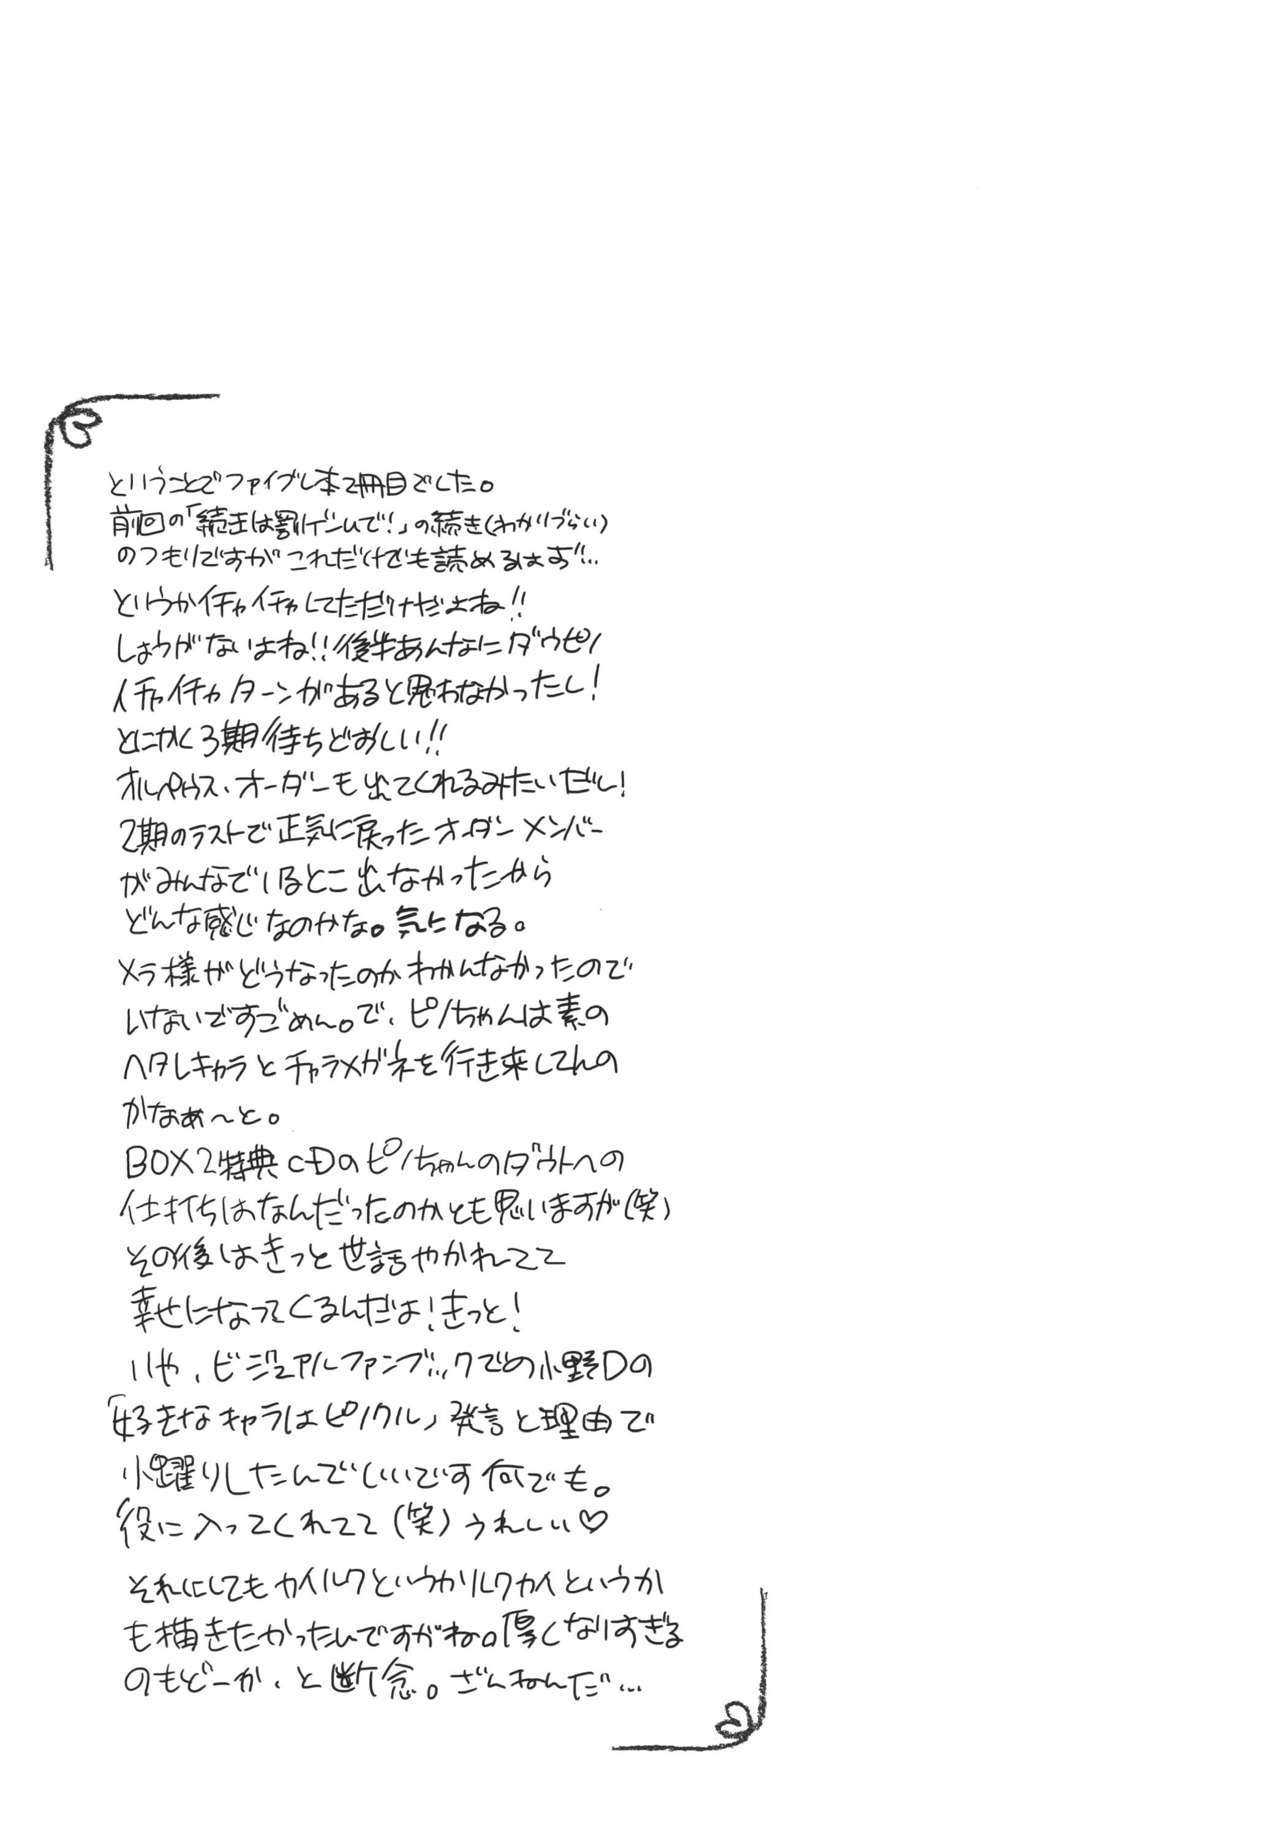 ということでファイブレ本2冊目でした。
前回の「続きは罰ゲームで!」の続き(わかりづらい)
のつもりですがこれだけでも読めるはず…
というかイチャイチャしてただけだよね!!
しょうがないよね!!後半あんなにダウピノ
イチャイチャターンがあると思わなかったし!
とにかく3期待ちどおしい!!
オルペウス・オーダーも出てくれるみたいだし!
2期のラストで正気に戻ったオーダーメンバー
がみんなでいるとこ出なかったから
どんな感じなのかな。気になる。
メラ様がどうなったのかわかんなかったので
いないですごめん。で、ピノちゃんは素の
ヘタレキャラとチャラメガネを行き来してんの
かなぁ~と。
BOX2特典CDのピノちゃんのダウトへの
仕打ちはなんだったのかとも思いますが(笑)
その後はきっと世話やかれてて
幸せになってくるんだよ!きっと!
いや、ビジュアルファンブックでの小野Dの
「好きなキャラはピノクル」発言と理由で
小躍りしたんでいいです何でも。
役に入ってくれてて(笑)うれしい♡
それにしてもカイルクというかルクカイというか
も描きたかったんですがね。厚くなりすぎる
のもどーか、と断念。ざんねんだ…